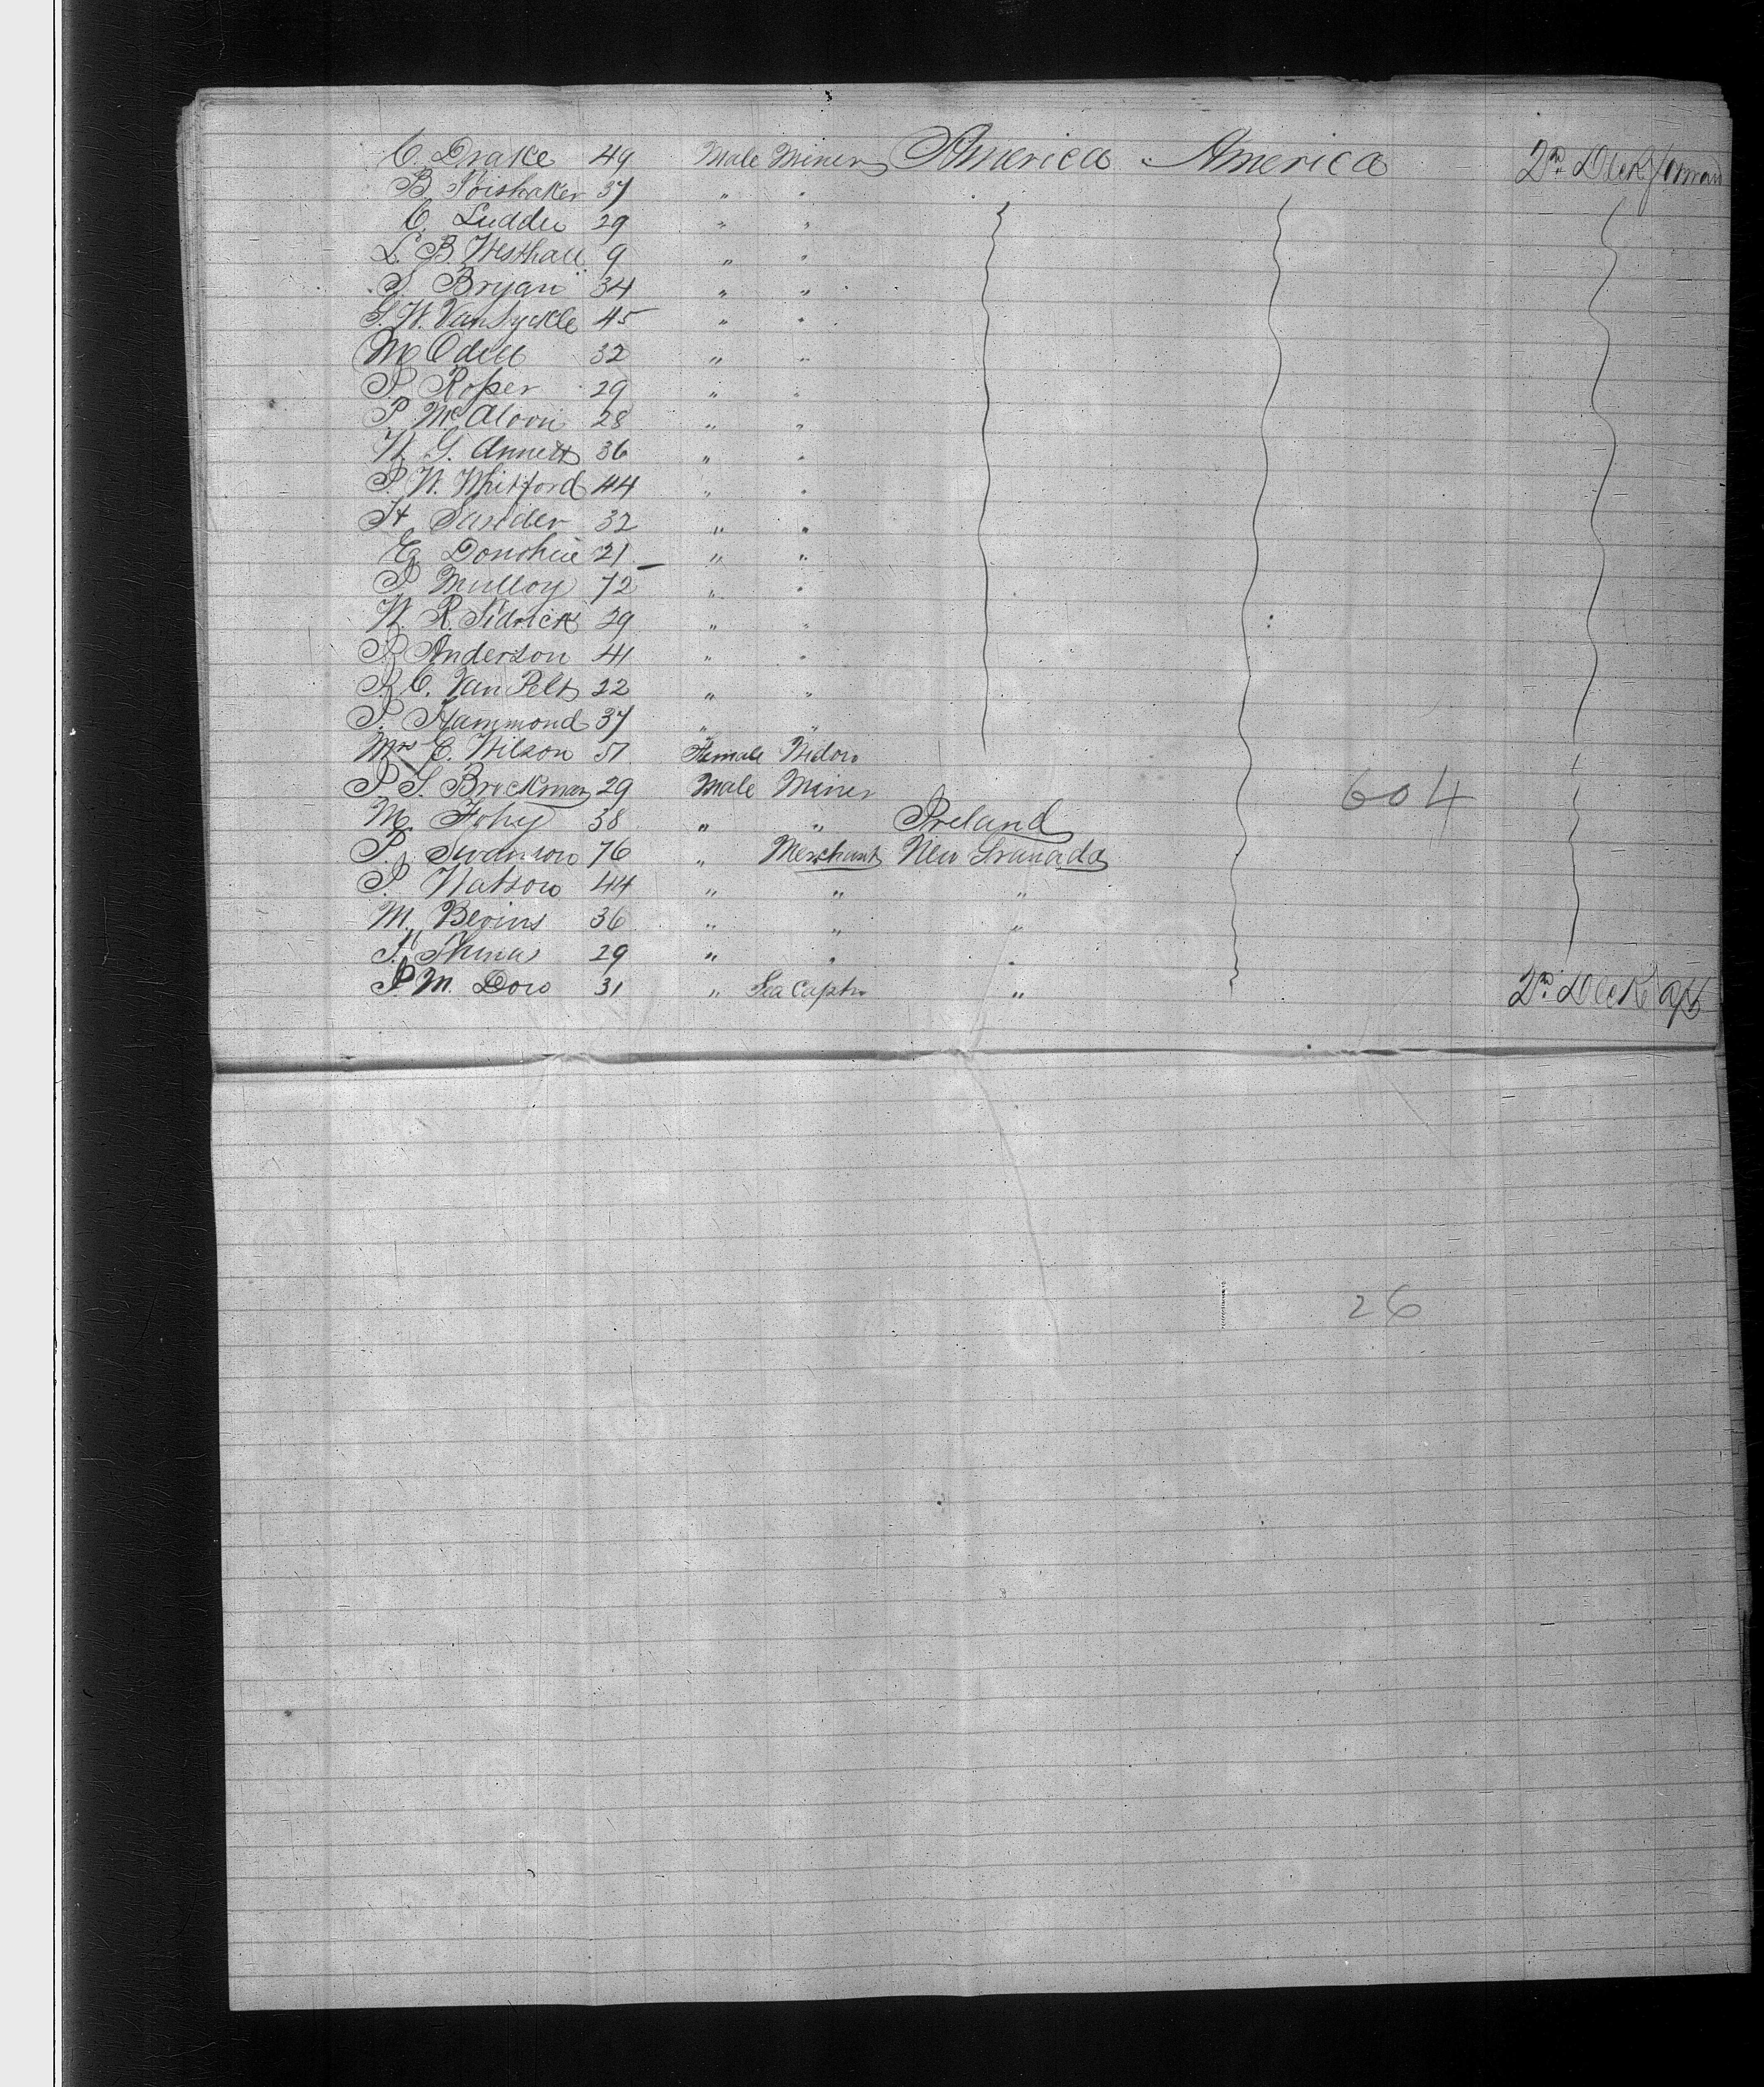 C. Drake 49 Male Miner America America 2nd Deck forward
B. Poishaker 37 " "
C. Ludder 29 " "
L. B. Westhall 9 " "
S. Bryan 34 " "
G. W. Van Syckle 45 " "
M Odell 32 " "
P. Roper 29 " "
P. McAloon 28 " "
W. G. Annett 36 " "
P. W. Whitford 44 " "
H. Snider 32 " "
E. Donohue 21 " "
P Mulloy 72 " "
W. R. Sidrick 29 " "
P. Anderson 41 " "
R. C. Van Pelt 22 " "
P. Hammond 37 " "
Mrs E. Wilson 51 Female Widow
P S. Brockman 29 Male Miner 604
M. Fohy 38 " " Ireland
P. Swanson 76 " Merchant New Granada
P. Watson 44 " " "
M. Bevins 36 " " "
29 " " "
P. M. Dow 31 " Sea Captn " 2nd Deck aft
26